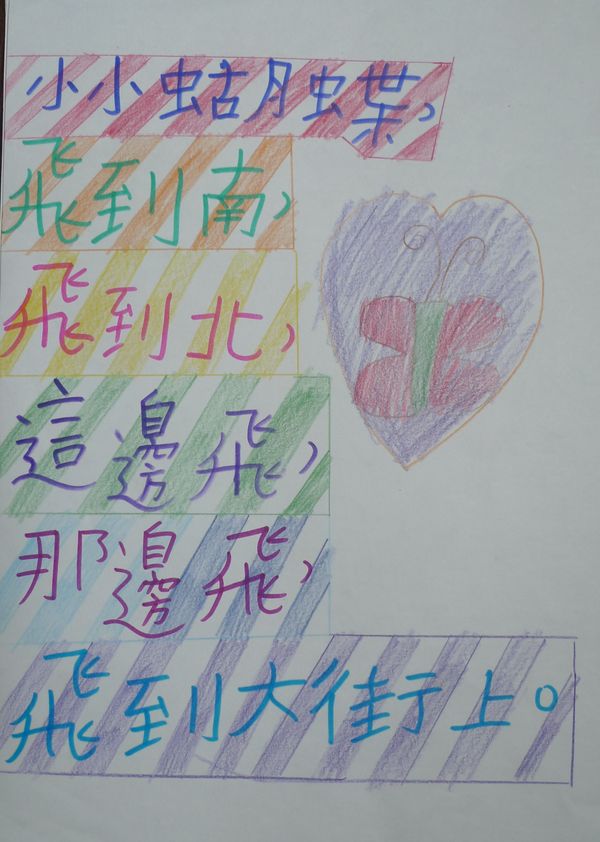 小小蝴蝶，
飛到南，
飛到北，
這邊飛，
那邊飛，
飛到大街上。